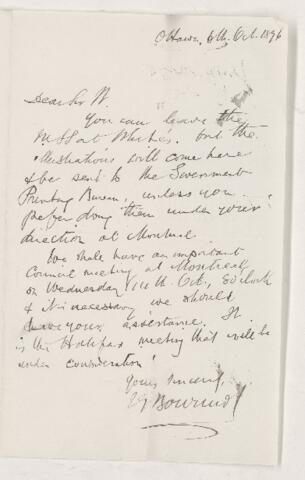 Ottawa, 6th Oct. 1896
Dear Sir W.
You can leave the
MSS at White's. but the
illustrations will come here
& be sent to the Government
Printing Bureau, unless you
prefer doing them under your
direction at Montreal.
We shall have an important
Council meeting at Montreal
on Wednesday 14th Oct., 8 o'clock
& it is necessary we should
have your assistance. It
is the Halifax meeting that will be
under consideration
Yours sincerely
JG Bourinot